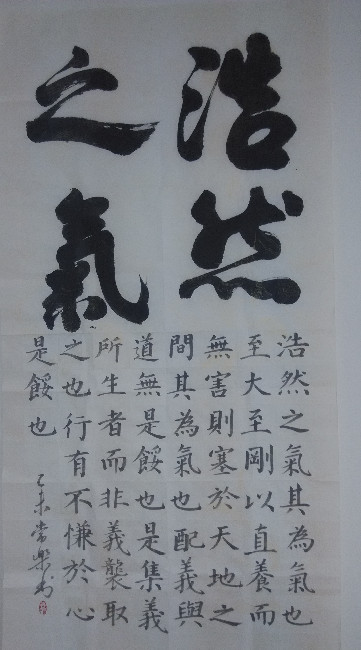 浩然
之氣
浩然之氣其為氣也
至大至剛以直養而
無害則塞於天地之
間其為氣也配義與
道無是餒也是集義
所生者而非義襲取
之也行有不慊於心
是餒也
己未常樂书